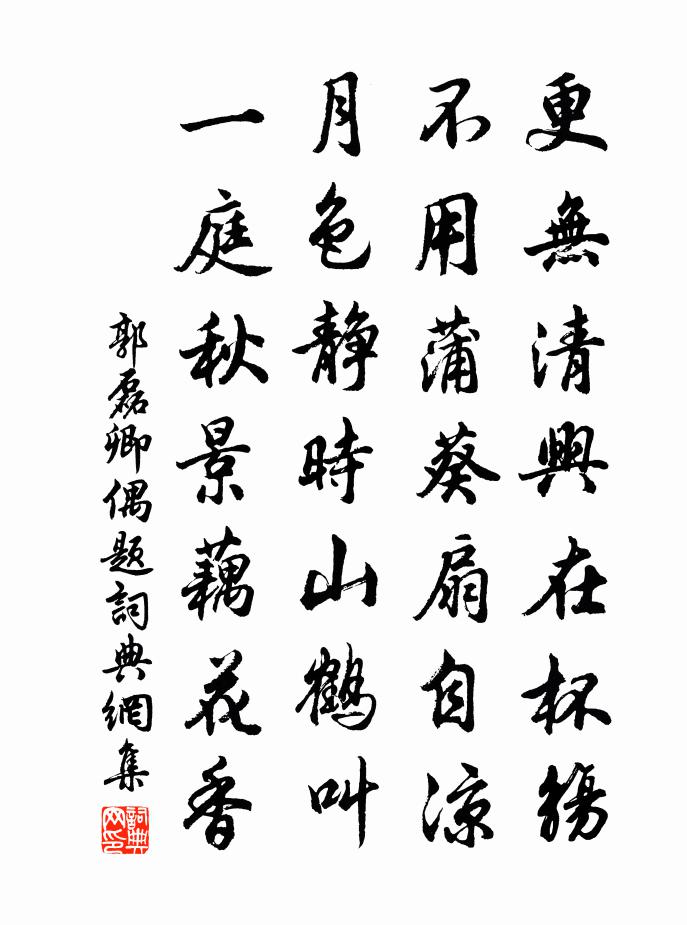 更無清興在杯觴
不用蒲葵扇自涼
月色靜時山鶴叫
一庭秋景藕花香
郭磊卿偶題詞典網集
詞典网印